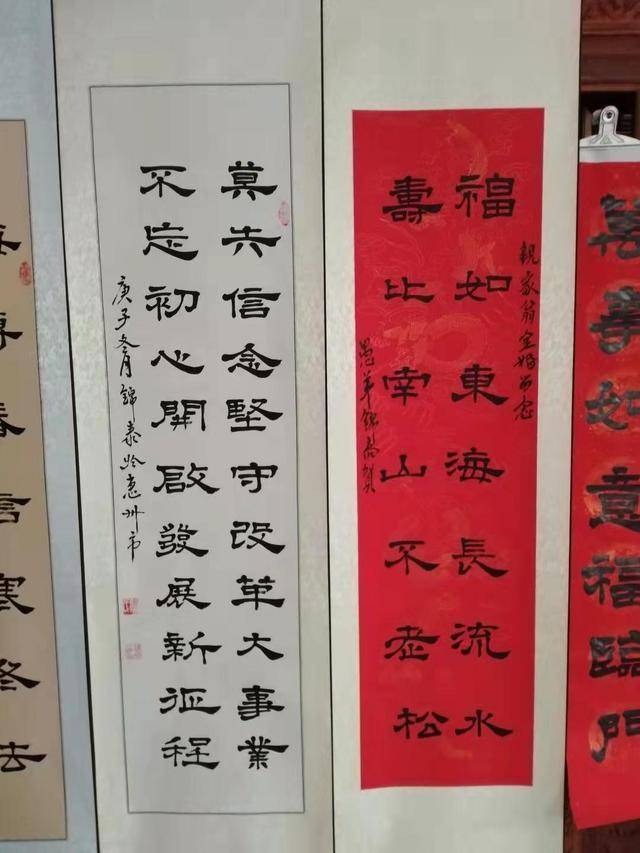 萬事如意福臨門
親家翁金婚留念
福如東海長流水
壽比南山不老松
愚弟錦泰賀
莫失信念堅守改革大事業
不忘初心開啟發展新征程
庚子冬月錦泰於惠州市
梅傳春信寒冬去